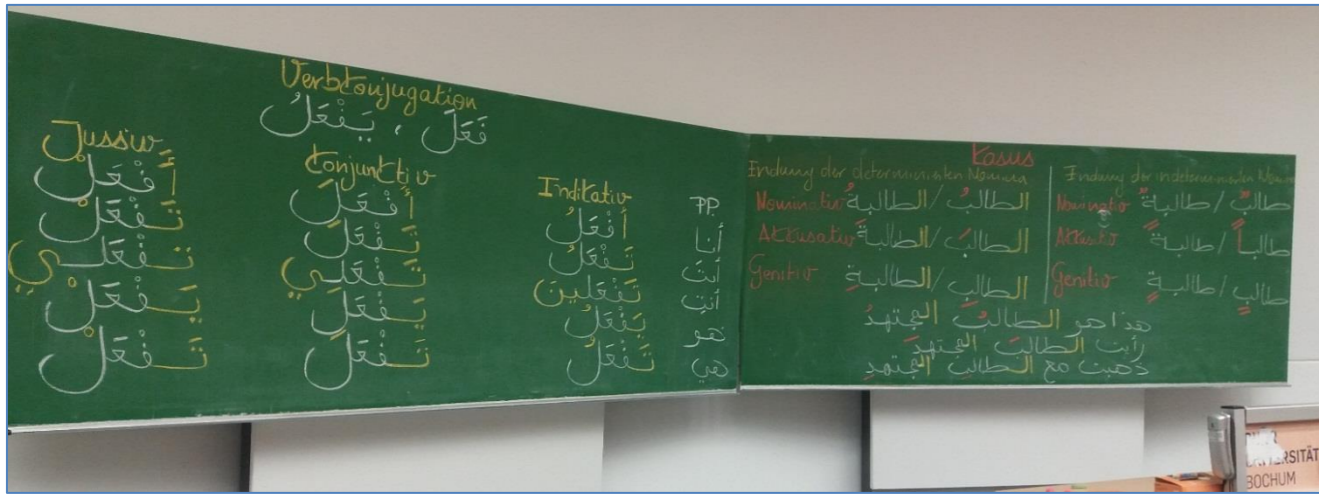 Verbkonjugation
فَعَلَ ، يَفْعَلُ
Jussiv
أَفْعَلْ
تَفْعَلْ
تَفْعَلِي
يَفْعَلْ
تَفْعَلْ
Konjunktiv
أَفْعَلَ
تَفْعَلَ
تَفْعَلِي
يَفْعَلَ
تَفْعَلَ
Indikativ
أَفْعَلُ
تَفْعَلُ
تَفْعَلِينَ
يَفْعَلُ
تَفْعَلُ
PP.
أنا
أنتَ
أنتِ
هو
هي
Kasus
Endung der determinierten Nomina
Nominativ الطالبُ / الطالبةُ
Akkusativ الطالبَ / الطالبةَ
Genitiv الطالبِ / الطالبةِ
Endung der indeterminierten Nomina
Nominativ طالبٌ / طالبةٌ
Akkusativ طالباً / طالبةً
Genitiv طالبٍ / طالبةٍ
هذا هو الطالبُ المجتهدُ
رأيت الطالبَ المجتهدَ
ذهبت مع الطالبِ المجتهدِ
BOCHUM